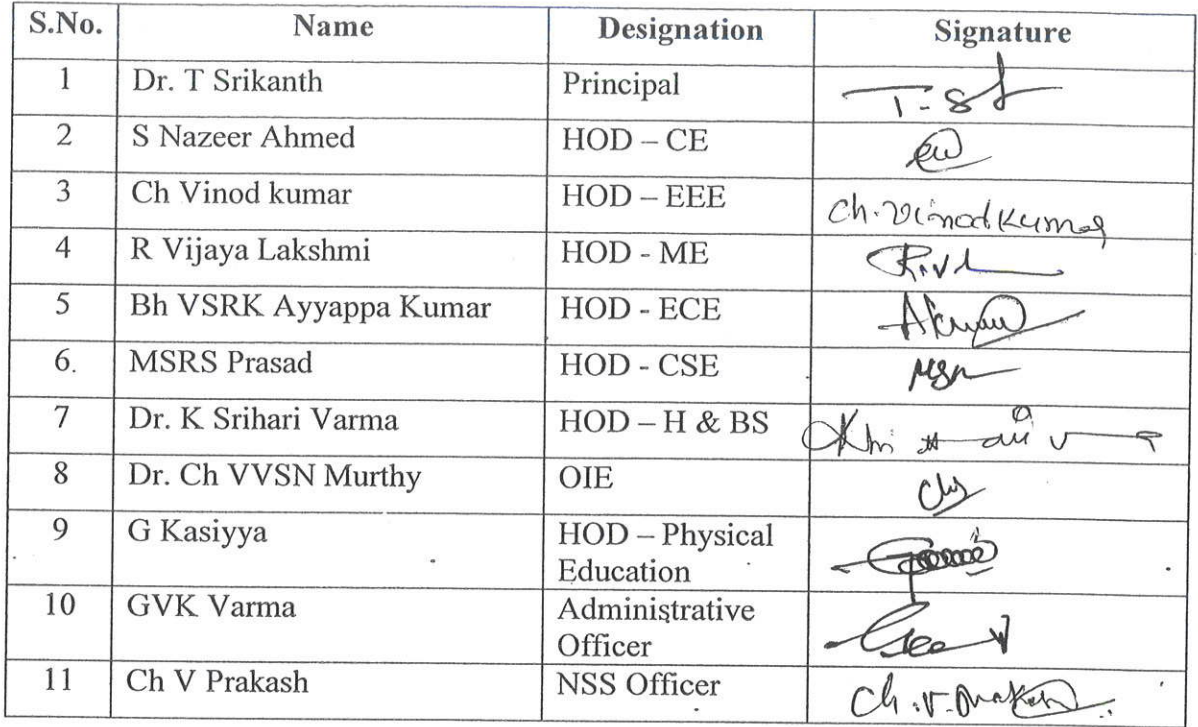 S.No. Name Designation Signature
1 Dr. T Srikanth Principal T. S
2 S Nazeer Ahmed HOD – CE
3 Ch Vinod kumar HOD – EEE Ch. Vinod Kumar
4 R Vijaya Lakshmi HOD - ME
5 Bh VSRK Ayyappa Kumar HOD - ECE
6. MSRS Prasad HOD - CSE
7 Dr. K Srihari Varma HOD – H & BS
8 Dr. Ch VVSN Murthy OIE
9 G Kasiyya HOD – Physical
Education
10 GVK Varma Administrative
Officer
11 Ch V Prakash NSS Officer Ch. V. Prakash